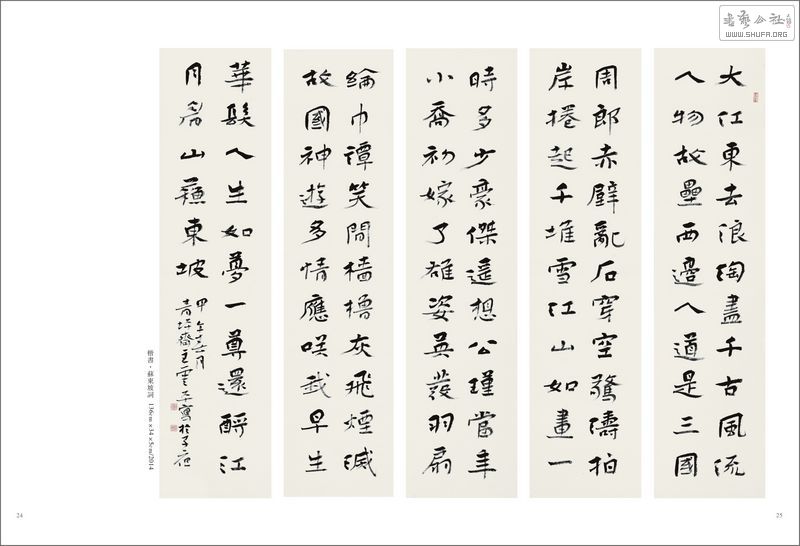 書藝公社
WWW.SHUFA.ORG
大江東去浪淘盡千古風流
人物故壘西邊人道是三國
周郎赤壁亂石穿空驚濤拍
岸捲起千堆雪江山如畫一
時多少豪傑遙想公瑾當年
小喬初嫁了雄姿英發羽扇
綸巾譚笑間檣櫓灰飛煙滅
故國神遊多情應咲我早生
華髮人生如夢一尊還酹江
月眉山蘇東坡
甲午 月
青坪齋王雲平寫於子夜
楷書·蘇東坡詞 136cm x34 x5cm/2014
24
25